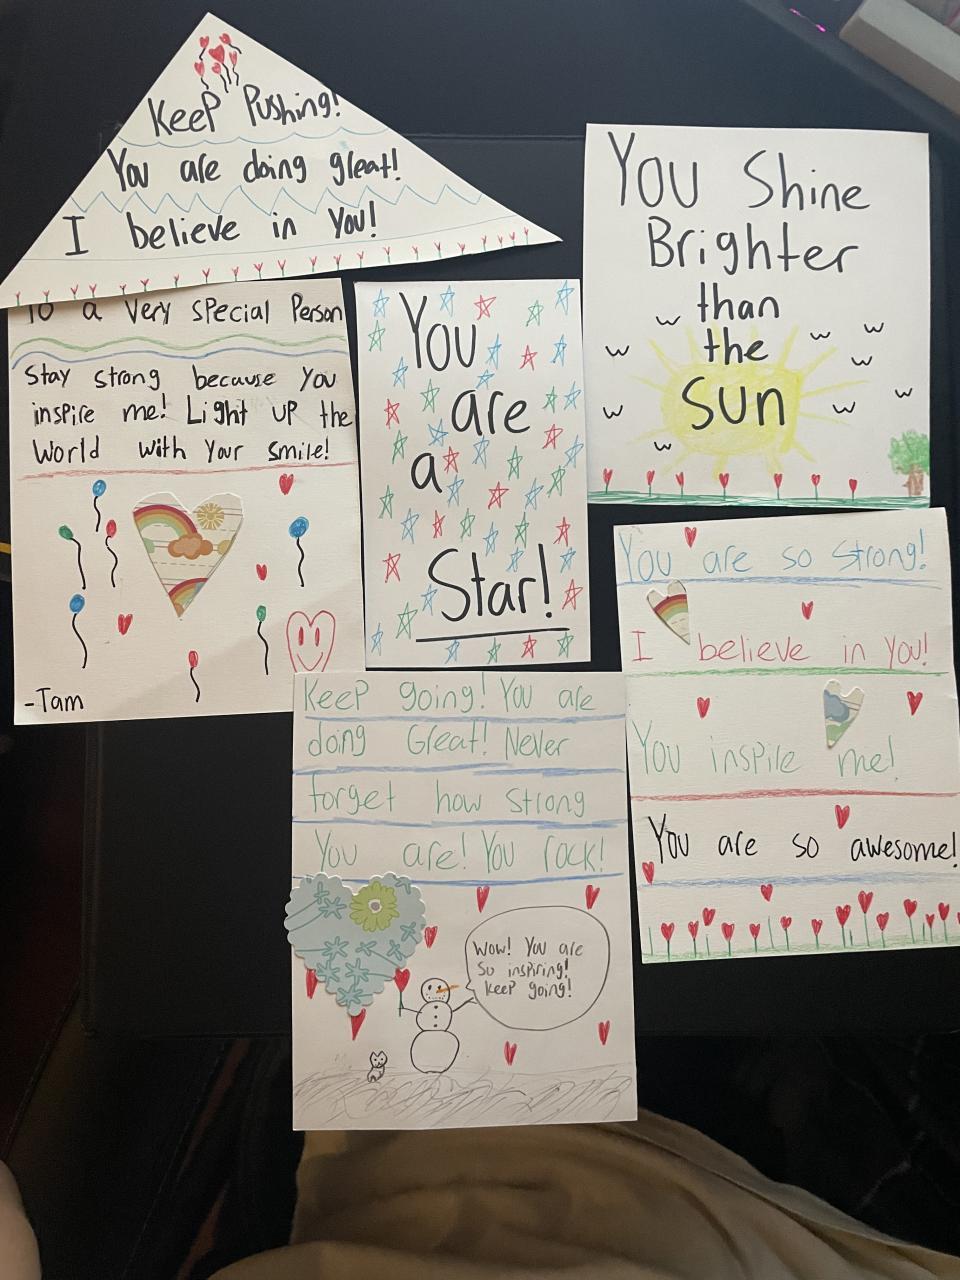 Keep Pushing!
You are doing great!
I believe in You!
You Shine
Brighter
than
the
Sun
To a Very Special Person
Stay strong because You
inspire me! Light up the
World with Your smile!
-Tam
You
are
a
Star!
You are so Strong!
I believe in You!
You inspire me!
You are so awesome!
Keep going! You are
doing Great! Never
forget how strong
You are! You rock!
Wow! You are
So inspiring!
Keep going!